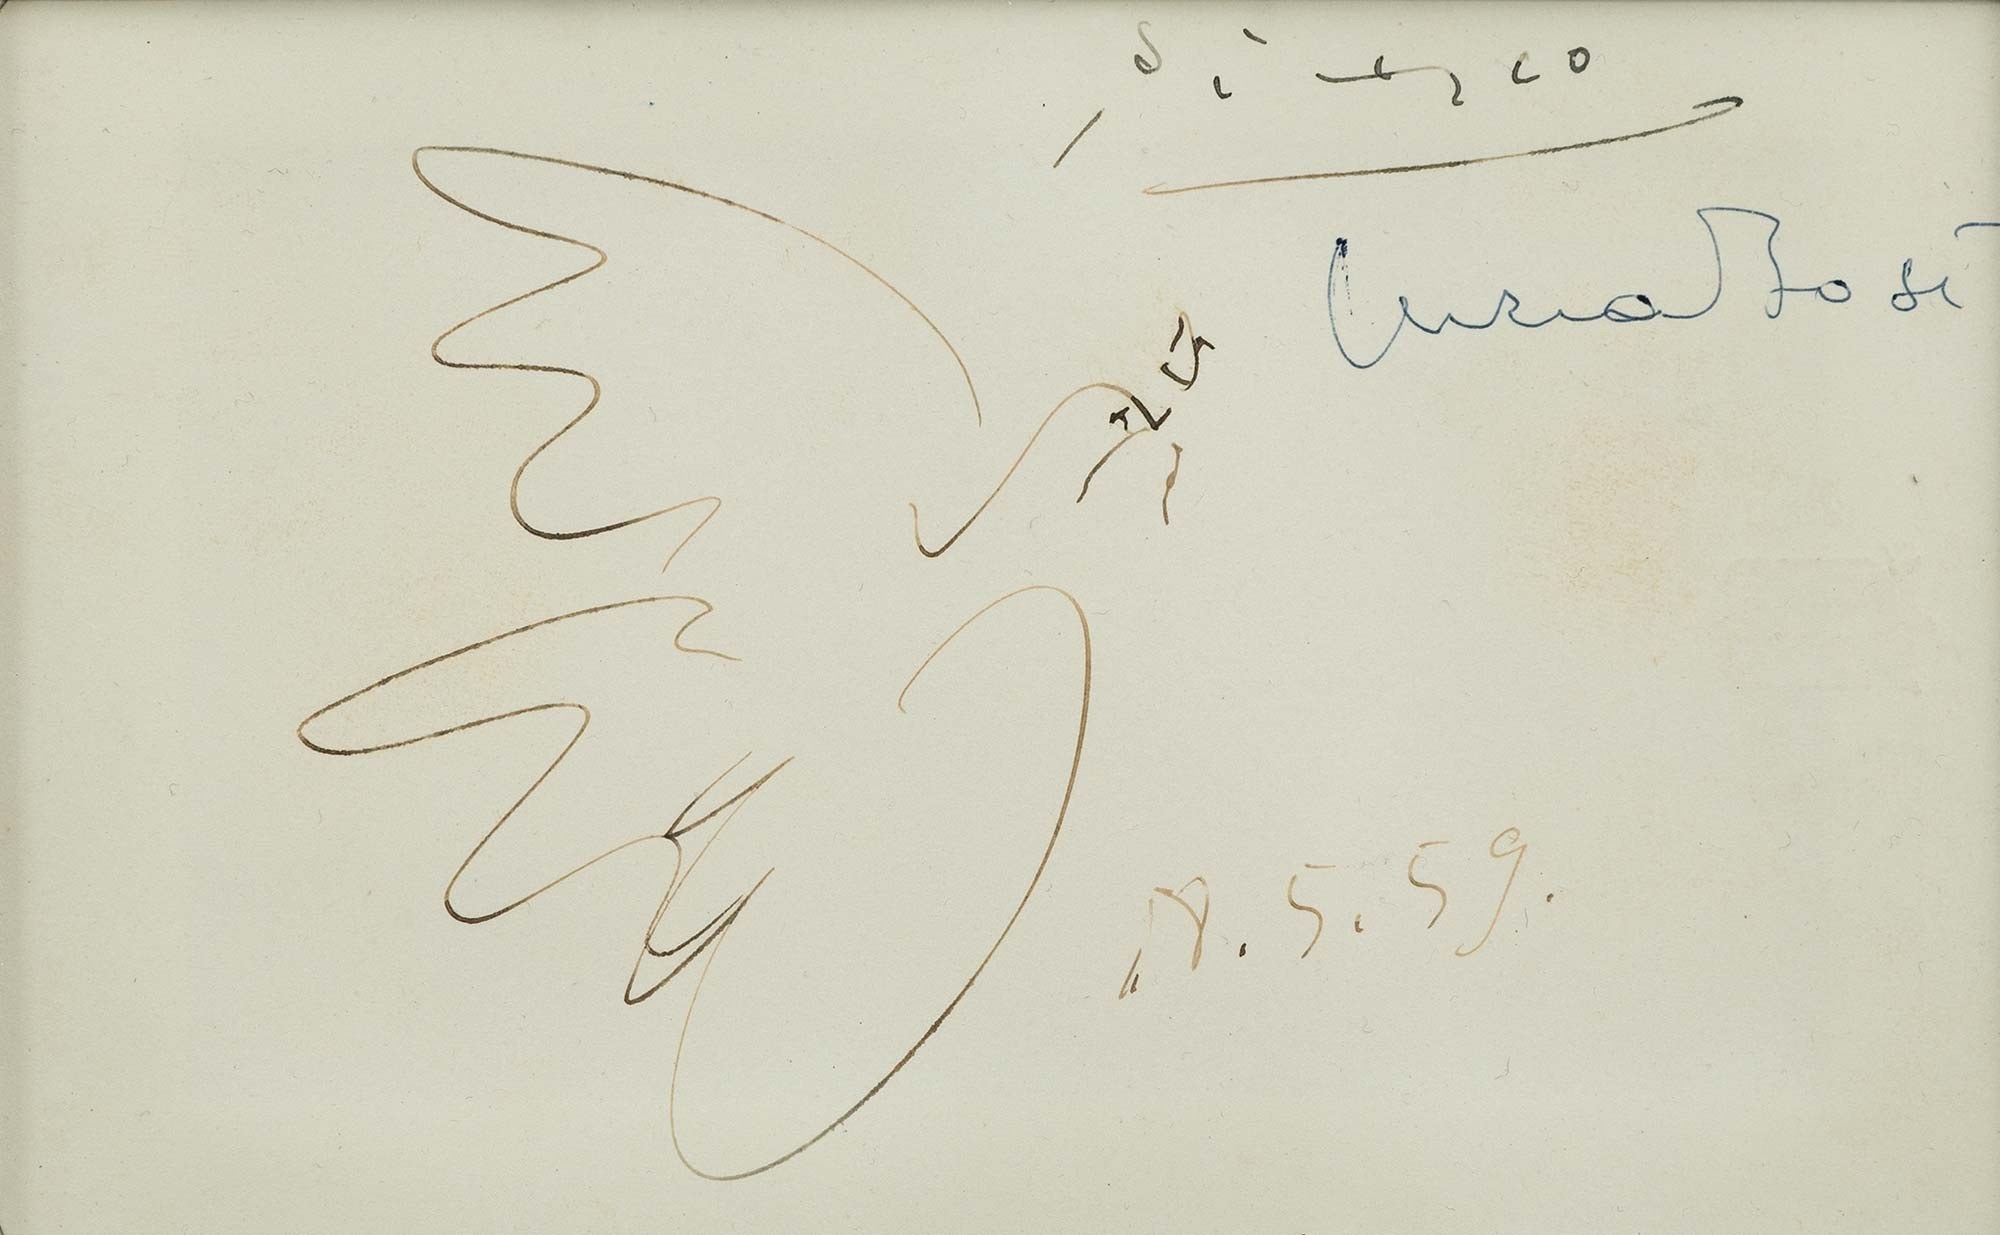 Picasso
Lucia Bosé
18.5.59.